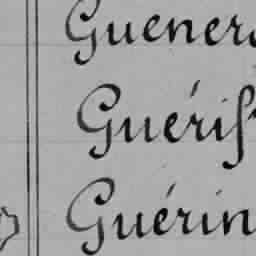 Guener
Guérif
Guérin